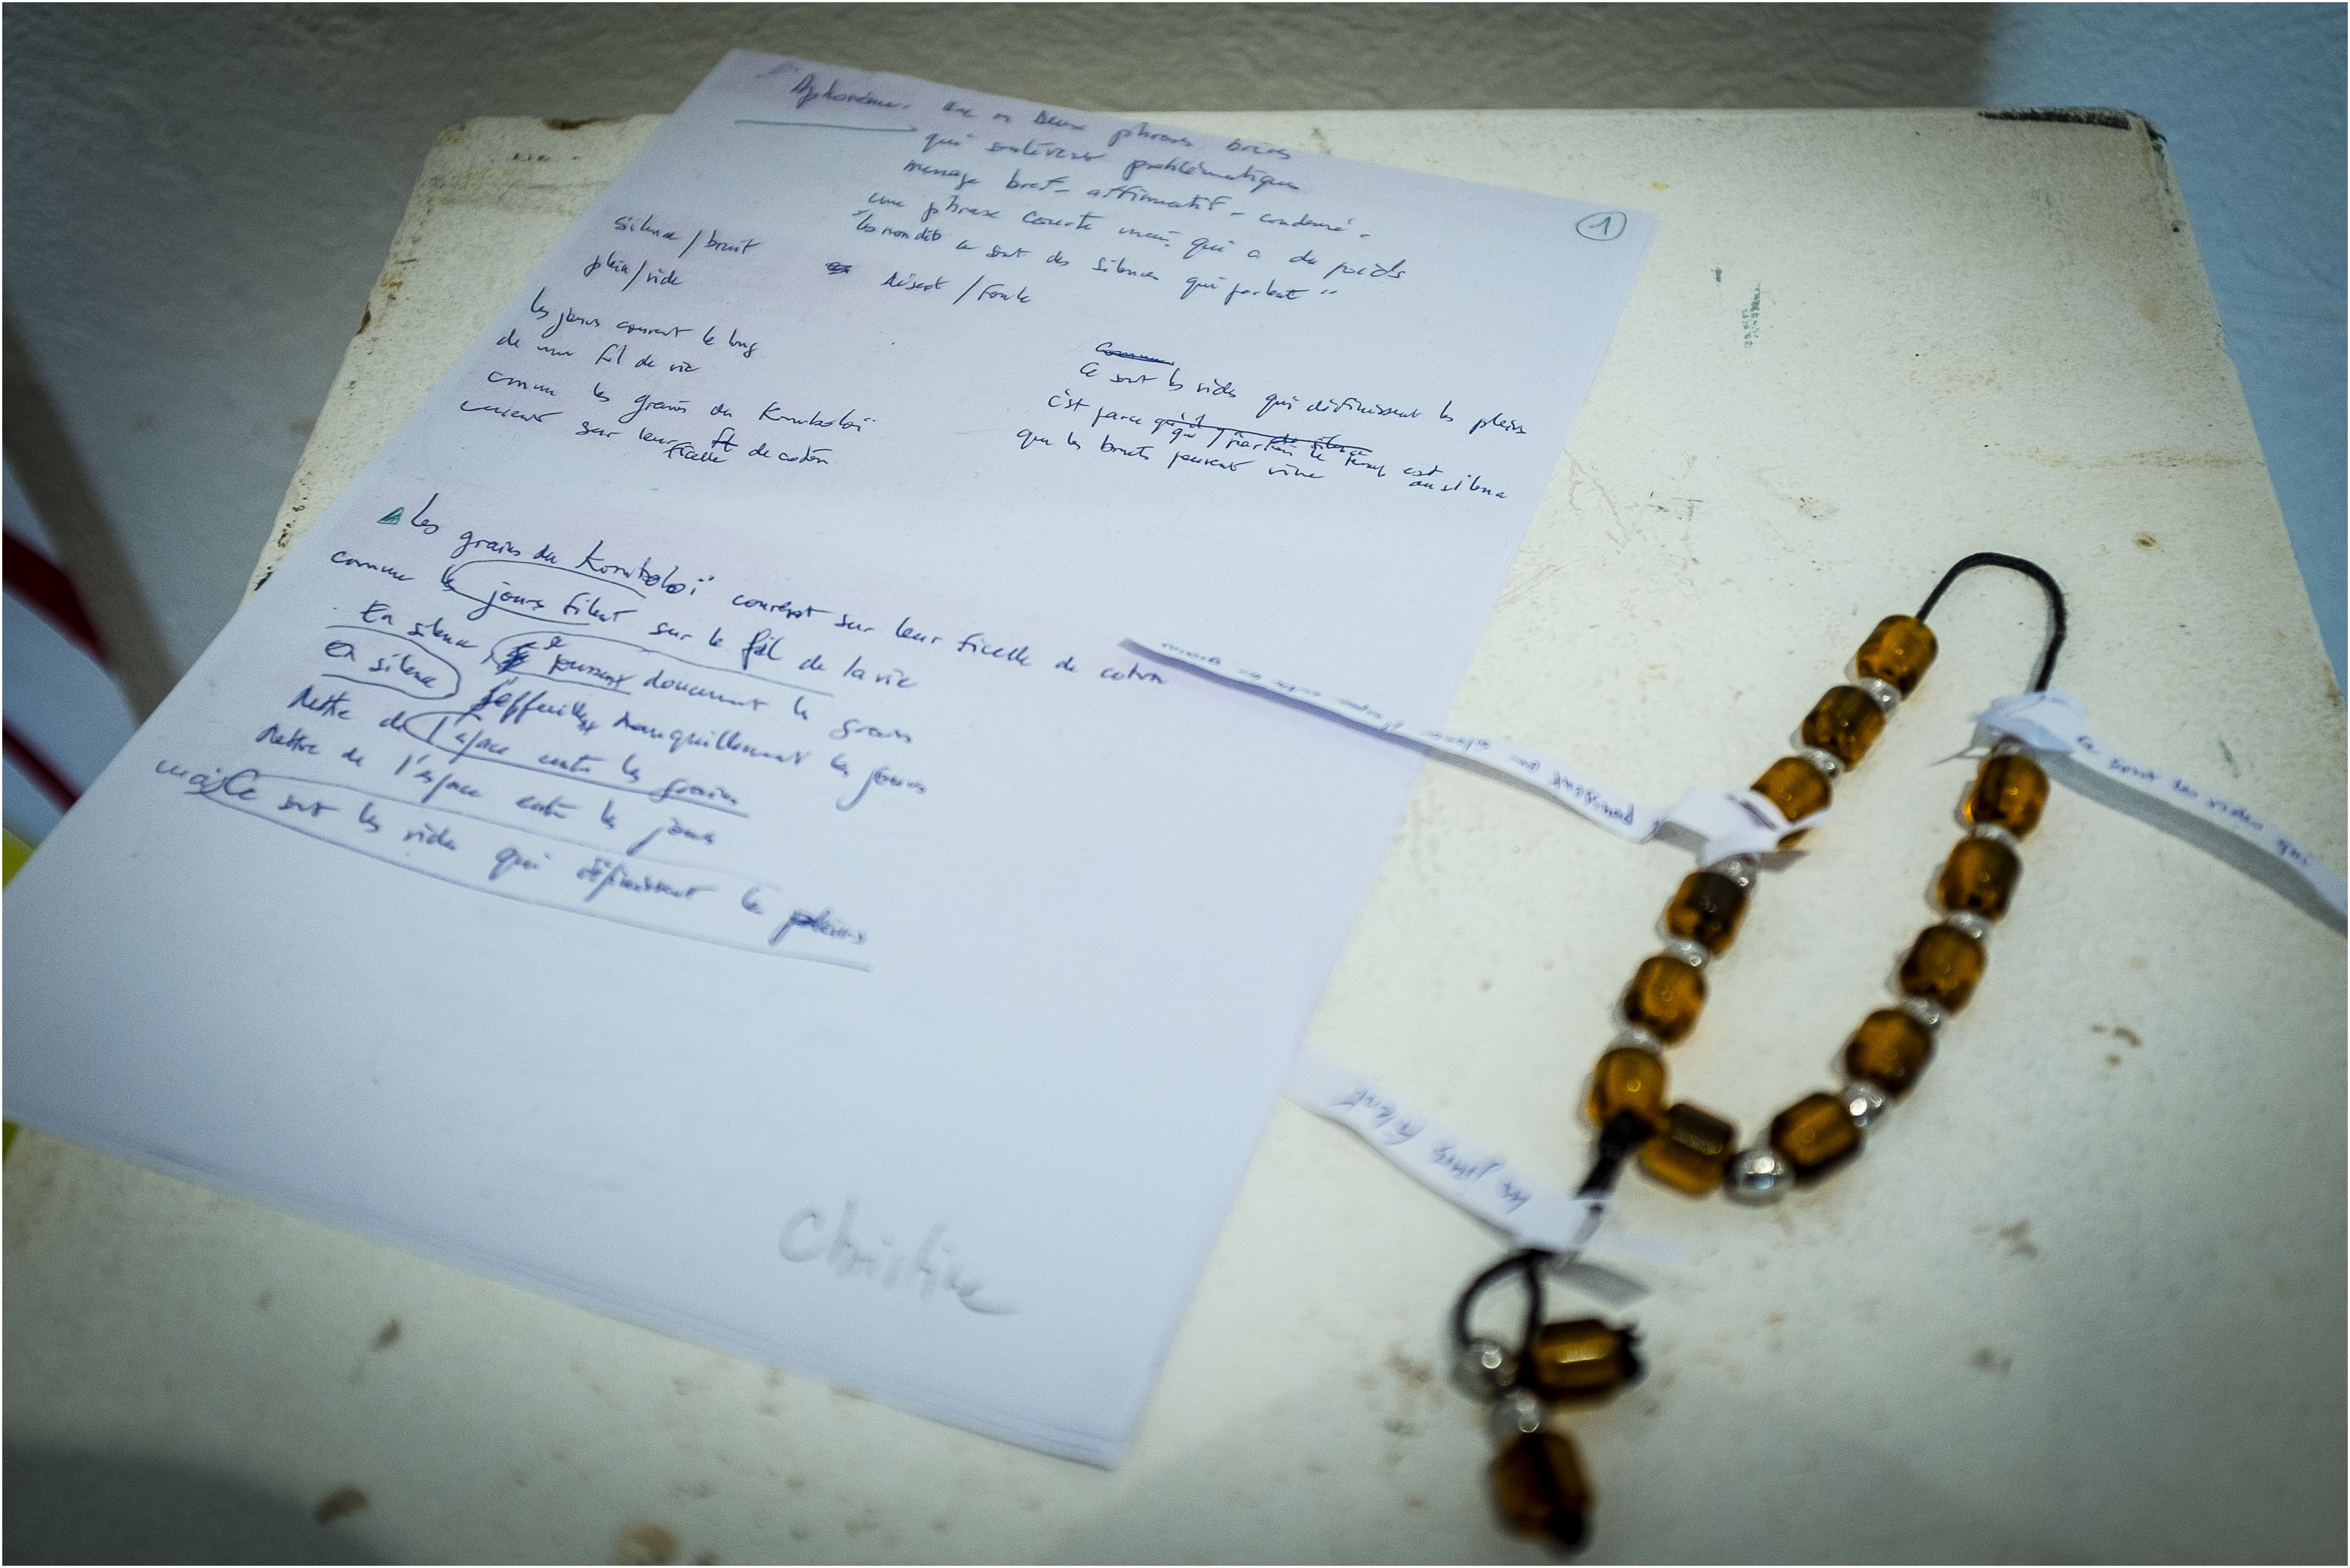 Aphorisme. Une ou Deux phrases brèves
qui soulèvent problématique
message bref - affirmatif - condensé -
une phrase courte mais qui a du poids
"les non dits ce sont des silences qui parlent"
1
silence / bruit
plein / vide
Désert / Foule
les jours courent le long
de mon fil de vie
comme les grains du Komboloï
sur leur ficelle de coton
Ce sont les vides qui définissent les pleins
c'est parce
que les bruits peuvent vivre
au silence
Les grains du Komboloï courent sur leur ficelle de coton
comme les jours filent sur le fil de la vie
En silence, se poussent doucement les grains
en silence s'effeuillent tranquillement les jours
Mettre de l'espace entre les grains
Mettre de l'espace entre les jours
mais Ce sont les vides qui définissent les pleins
Christine
poussent
ce sont les vides qui
les jours filent